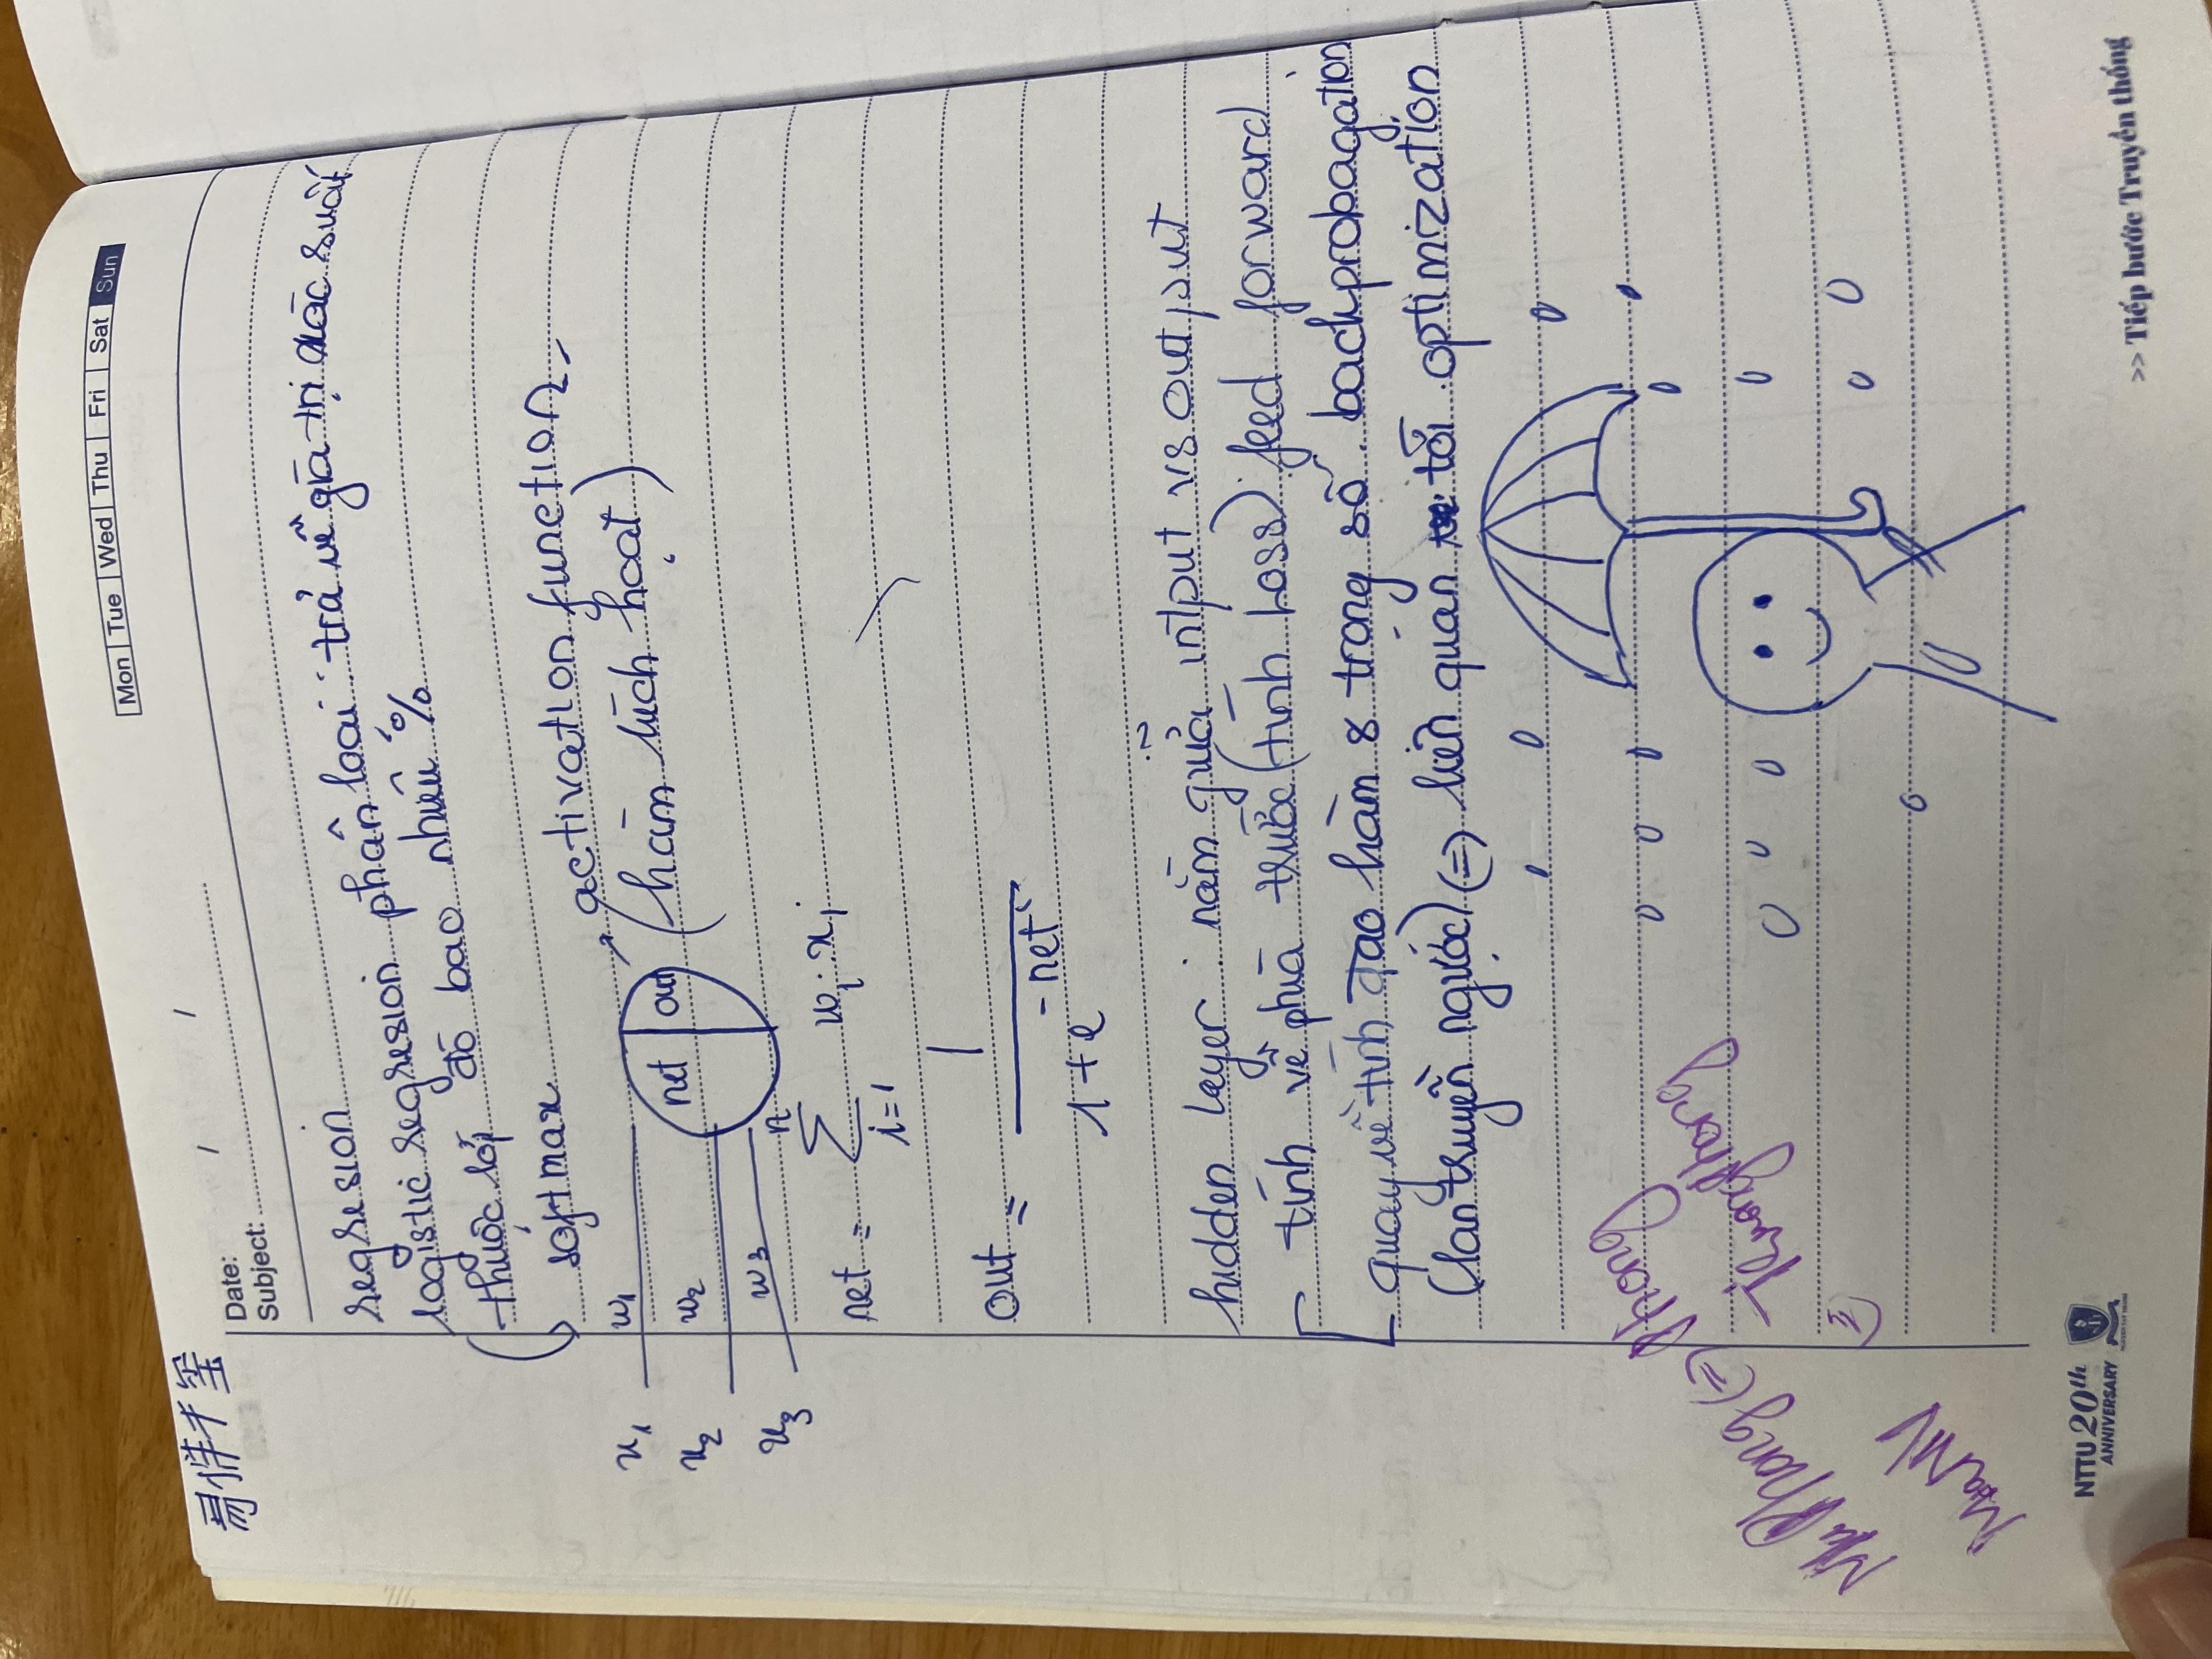 Mon Tue Wed Thu Fri Sat Sun
易烊千玺
Date: / /
Subject:
regresion
logistic regresion phân loại: trả về giá trị xác suất
thuộc lớp đó bao nhiêu %
softmax
activation function
(hàm kích hoạt)
x1 w1
x2 w2
x3 w3
net out
net = n∑i=1 wi.xi
out = 1 / 1+e^-net
hidden layer: nằm giữa intput vs output
tính về phía trước (tính Loss) feed forward
quay về tính đạo hàm & trong số. backprobagation
(lan truyền ngược) (=) liên quan tới optimization
Phong (=) Phong
Truong Phong
NTTU 20th
ANNIVERSARY
NGUYEN TAT THANH
>> Tiếp bước Truyền thống